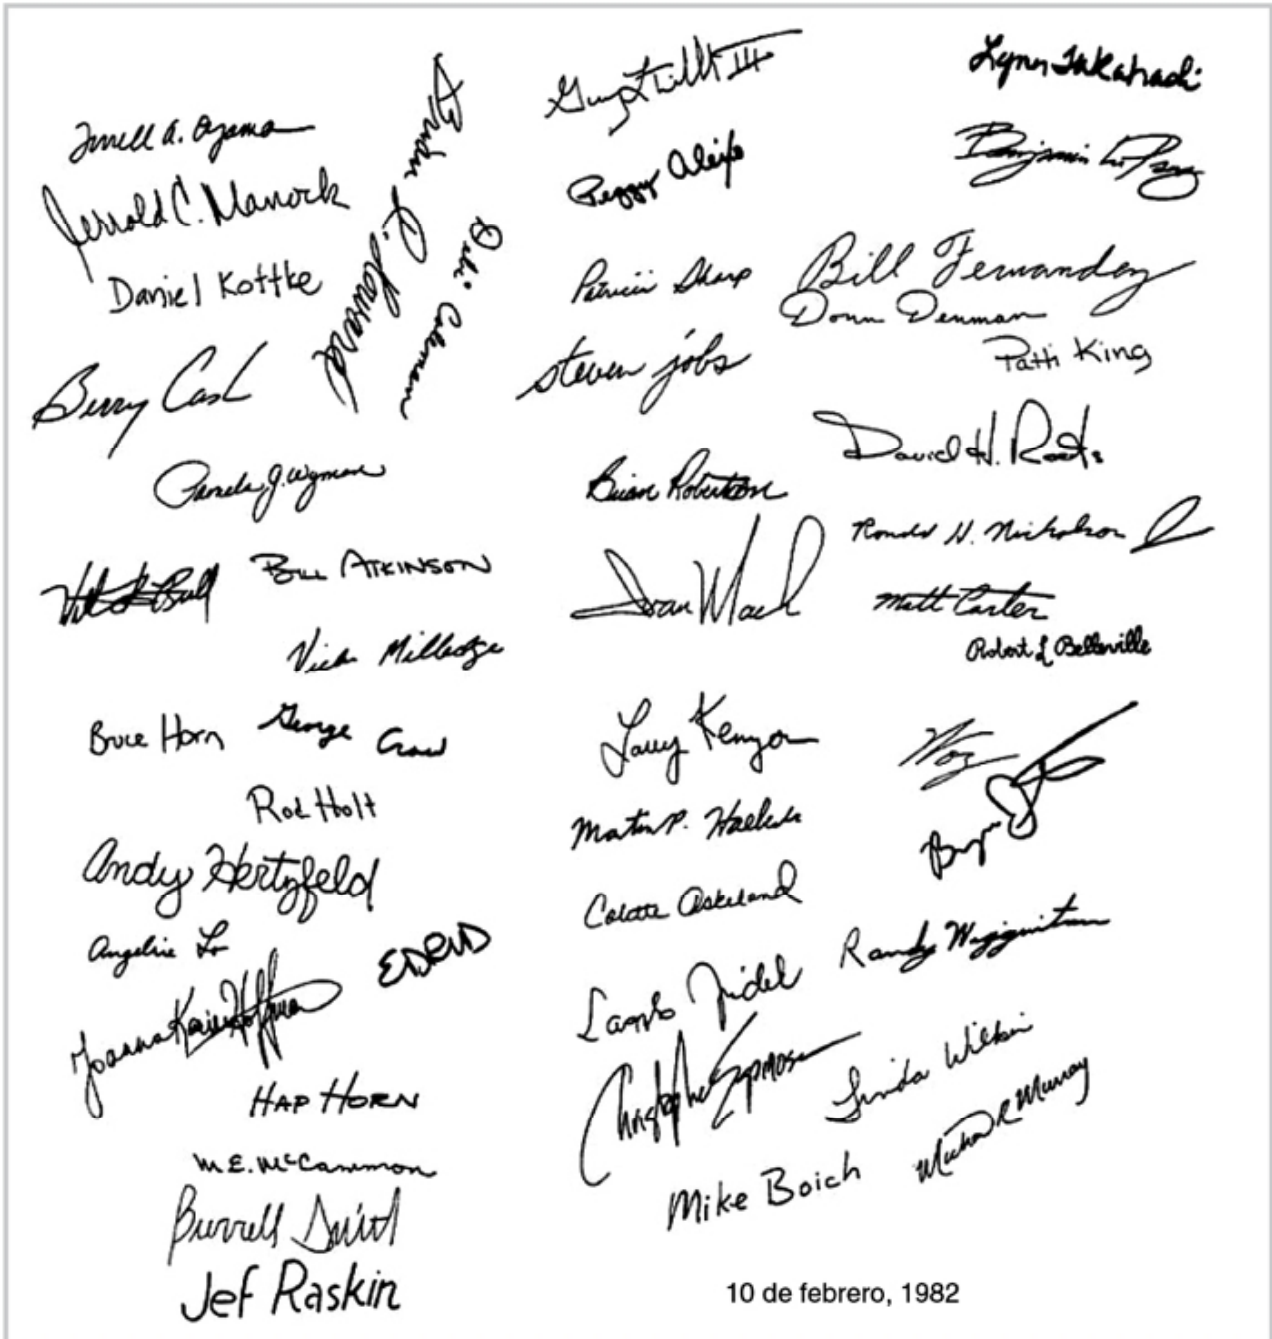 Terrell A. Oyama
Jerrold C. Manock
Daniel Kottke
Brian R. Howard
Debi Coleman
Berry Cash
Pamela G. Wyman
Bill Atkinson
Vicki Milledge
Bruce Horn
George Crow
Rod Holt
Andy Hertzfeld
Angeline Lo
Joanna Karin Hoffman
Hap Horn
M.E. McCammon
Burrell Smith
Jef Raskin
Peggy Alexio
Patricia Sharp
steven jobs
Brian Robertson
Ivan Mach
Larry Kenyon
Martin P. Haeberli
Colette Askeland
Laszlo Zidek
Christopher Espinosa
Mike Boich
Lynn Takahashi
Benjamin L. Pang
Bill Fernandez
Donn Denman
Patti King
David H. Roots
Ronald H. Nicholson Jr
Matt Carter
Robert L Belleville
Woz
Bryan
Randy Wigginton
Linda Wilkin
Michael R Murray
10 de febrero, 1982